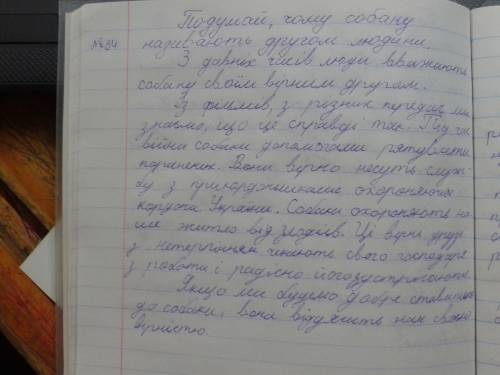 Подумай, чому собаку
№34 називають другом людини.
З давніх часів люди вважають
собаку своїм вірним другом.
Із фільмів, з різних передач ми
знаємо, що це справді так. Під час
війни собаки допомагали рятувати
поранених. Вони вірно несуть служ-
бу з прикордонниками охороняючи
кордони України. Собаки охороняють на-
ше житло від злодіїв. Ці вірні друзі
з нетерпінням чекають свого господаря
з роботи і радісно його зустрічають.
Якщо ми будемо добре ставитися
до собаки, вона віддячить нам своєю
вірністю.